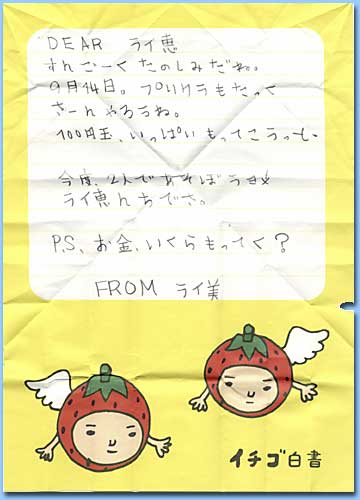 DEAR ライ恵
すんごーくたのしみだね。
9月14日。プリクラもたっく
さーんやろうね。
100円玉、いっぱいもってこうっと。
今度、2人であそぼうね
ライ恵んちでさ。
P.S、お金、いくらもってく?
FROM ライ美
イチゴ白書